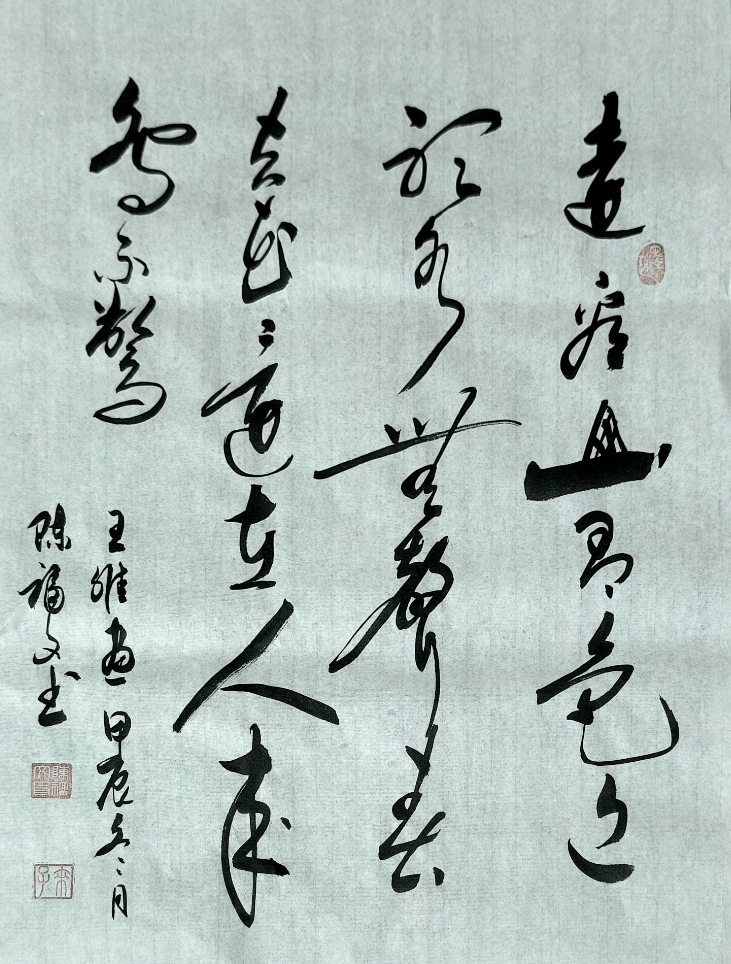 遠看山有色近
聽水無聲春
去花還在人來
鳥不驚
王維畫甲辰冬月
陳福文书